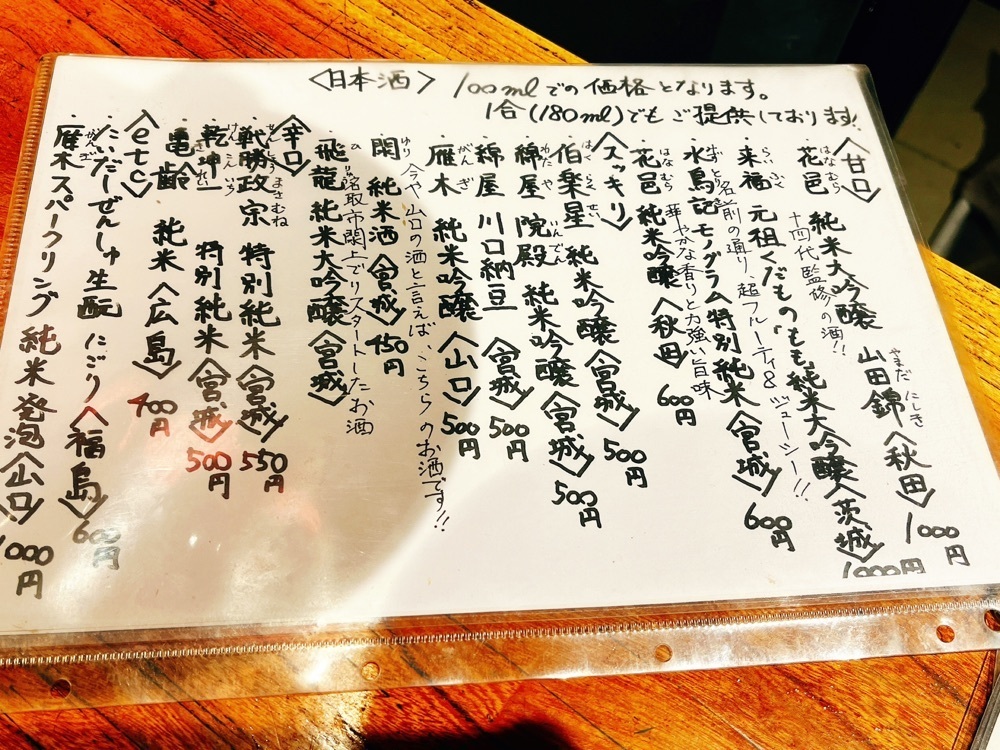 〈日本酒〉 100mlでの価格となります。
1合(180ml)でもご提供しております!
〈甘口〉
・花邑 純米大吟醸 山田錦〈秋田〉1000円
はなむら やまだにしき
十四代監修の酒!!
・来福 元祖くだものもも純米大吟醸〈茨城〉1000円
らいふく
名前の通り、超フルーティ&ジューシー!!
・水鳥記 モノグラム特別純米〈宮城〉600円
みずとりき
・花邑 純米吟醸〈秋田〉600円
はなむら
華やかな香りと力強い旨味
〈スッキリ〉
・伯楽星 純米吟醸〈宮城〉500円
はくらくせい
・綿屋 院殿 純米吟醸〈宮城〉500円
わたや いんでん
・綿屋 川口納豆〈宮城〉500円
・雁木 純米吟醸〈山口〉500円
がんぎ
今や山口の酒と言えば、こちらのお酒です!!
・閖 純米酒〈宮城〉450円
ゆり
名取市閖上でリスタートしたお酒
・飛龍 純米大吟醸〈宮城〉
〈辛口〉
・戦勝政宗 特別純米〈宮城〉550円
せんしょうまさむね
・乾坤一 特別純米〈宮城〉500円
けんこんいち
・亀齢 純米〈広島〉400円
きれい
〈etc〉
・たいだーぜんしゅ生酛 にごり〈福島〉600円
・雁木スパークリング 純米発泡〈山口〉1000円
がんぎ